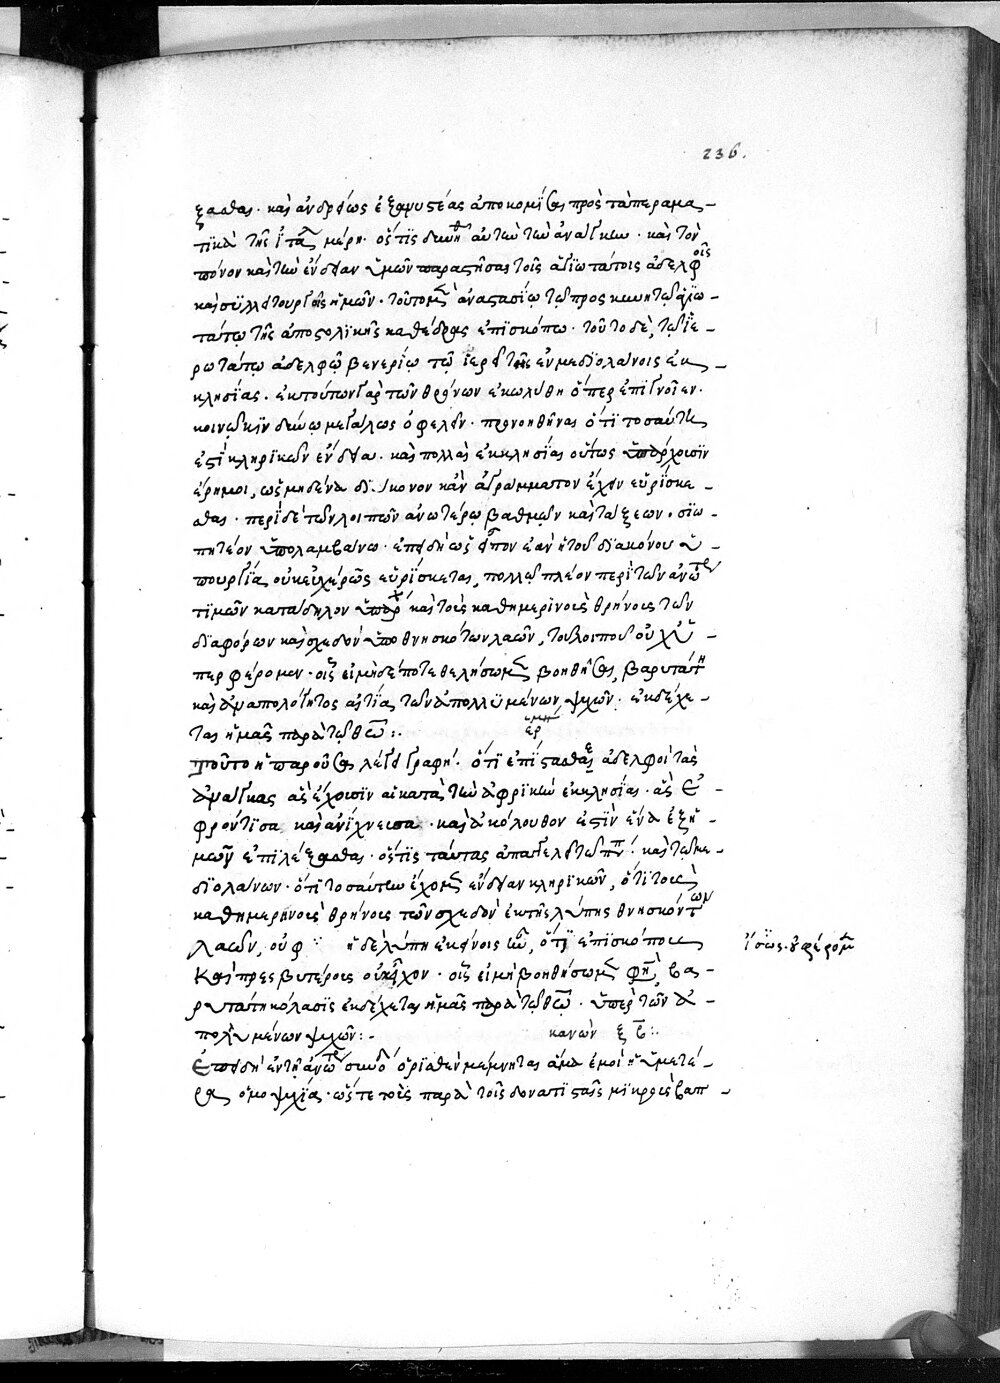 236.
ξασθαι · καὶ ἀνδρείως ἐξανυστέας ἀποκομίσαι πρὸς τὰ περαμα-
τικὰ τῆς ἰταλ μέρη · ὅς τις δυνηθῆ αὐτὴν τὴν ἀνάγκην · καὶ τὸν
πόνον καὶ τὴν ἔνδειαν ἡμῶν παραστῆσαι τοῖς ἁγιωτάτοις ἀδελφοῖς
καὶ συλλειτουργοῖς ἡμῶν · τοῦτομεν ἀναστασίῳ τῷ προσκυνητῷ ἁγιω-
τάτῳ τῆς ἀποστολικῆς καθέδρας ἐπισκόπῳ · τοῦτο δὲ, τῷ ἱε-
ρωτάτῳ ἀδελφῷ βενερίῳ τῷ ἱερεῖ τῆς ἐν μεδιολάνοις ἐκ-
κλησίας · ἐκ τούτων γὰρ τῶν θρόνων ἐκωλύθη ὅπερ ἐπιγνοῖεν ·
κοινῷ κινδύνῳ μεγάλως ὀφείλειν · προνοηθῆναι ὅτι τοσαύτη
ἐστὶ κληρικῶν ἔνδεια · καὶ πολλαὶ ἐκκλησίαι οὕτως ὑπάρχουσιν
ἔρημοι, ὡς μηδένα διάκονον κἂν ἀγράμματον ἔχειν εὑρίσκε-
σθαι · περὶ δὲ τῶν λοιπῶν ἀνωτέρω βαθμῶν καὶ τάξεων · σιω-
πητέον ὑπολαμβάνω · ἐπειδὴ ὡς εἶπον ἐὰν ἡ τοῦ διακόνου ὑ-
πουργία, οὐκ εὐχερῶς εὑρίσκεται, πολλῷ πλέον περὶ τῶν ἀνωτέρων
τιμῶν κατάδηλον ὑπάρχ καὶ τοὺς καθημερινοὺς θρήνους τῶν
διαφόρων καὶ σχεδὸν ὑποθνησκόντων λαῶν, τοῦ λοιποῦ οὐχ ὑ-
περφέρομεν · οἷς εἰ μὴ δέποτε θελήσωμεν βοηθῆσαι, βαρυτάτη
καὶ ἀναπολόγητος αἰτία τῶν ἀπολλυμένων ψυχῶν · ἐκδέχε-
ται ἡμᾶς παρὰ τῷ θεῷ :·
ἑρμη
Τοῦτο ἡ παροῦσα λέγει γραφή · ὅτι ἐπίστασθαι ἀδελφοὶ τὰς
ἀνάγκας ἃς ἔχουσιν αἱ κατὰ τὴν ἀφρικὴν ἐκκλησίαι · ἃς ἐ-
φρόντισα καὶ ἀνίχνευσα · καὶ ἀκόλουθον ἐστὶν ἕνα ἐξ ἡ-
μῶν ἐπιλέξασθαι · ὅς τις ταύτας ἀπαγγελεῖ τῷ ππ · καὶ τῷ με-
διολάνων · ὅτι τοσαύτην ἔχομεν ἔνδειαν κληρικῶν, ὅτι τοὺς
καθημερηνοὺς θρήνους τῶν σχεδὸν ἐκ τῆς λύπης θνησκόντων
λαῶν, οὐ φ · ἡ δὲ λύπη ἐκείνοις ἦν, ὅτι ἐπισκόπους
καὶ πρεσβυτέρους οὐκ εἶχον · οἷς εἰ μὴ βοηθήσωμεν φησὶ, βα-
ρυτάτη κόλασις ἐκδέχεται ἡμᾶς παρὰ τῷ θεῷ · ὑπὲρ τῶν ἀ-
πολλυμένων ψυχῶν :·
ἴσως · ὑφέρομεν
κανὼν ξ
Ἐπειδὴ ἐν τῇ ἀνωτέρ συνόδ ὁρισθὲν μέμνηται ἅμα ἐμοὶ ἡ ὑμετέ-
ρα ὁμοψυχία · ὥστε τοὺς παρὰ τοῖς δονατισταῖς μικροὺς βαπ-